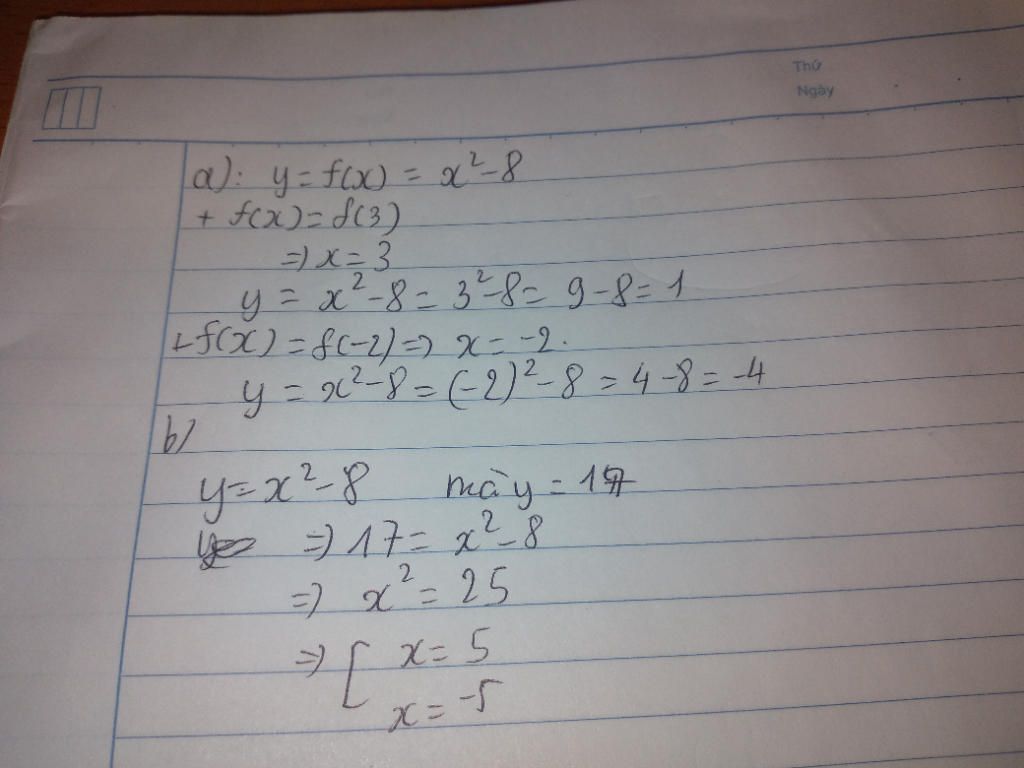 Thứ
Ngày
a): y = f(x) = x² - 8
+ f(x) = f(3)
=> x = 3
y = x² - 8 = 3² - 8 = 9 - 8 = 1
+ f(x) = f(-2) => x = -2.
y = x² - 8 = (-2)² - 8 = 4 - 8 = -4
b)
y = x² - 8 mà y = 17
=> 17 = x² - 8
=> x² = 25
=> [ x = 5
x = -5